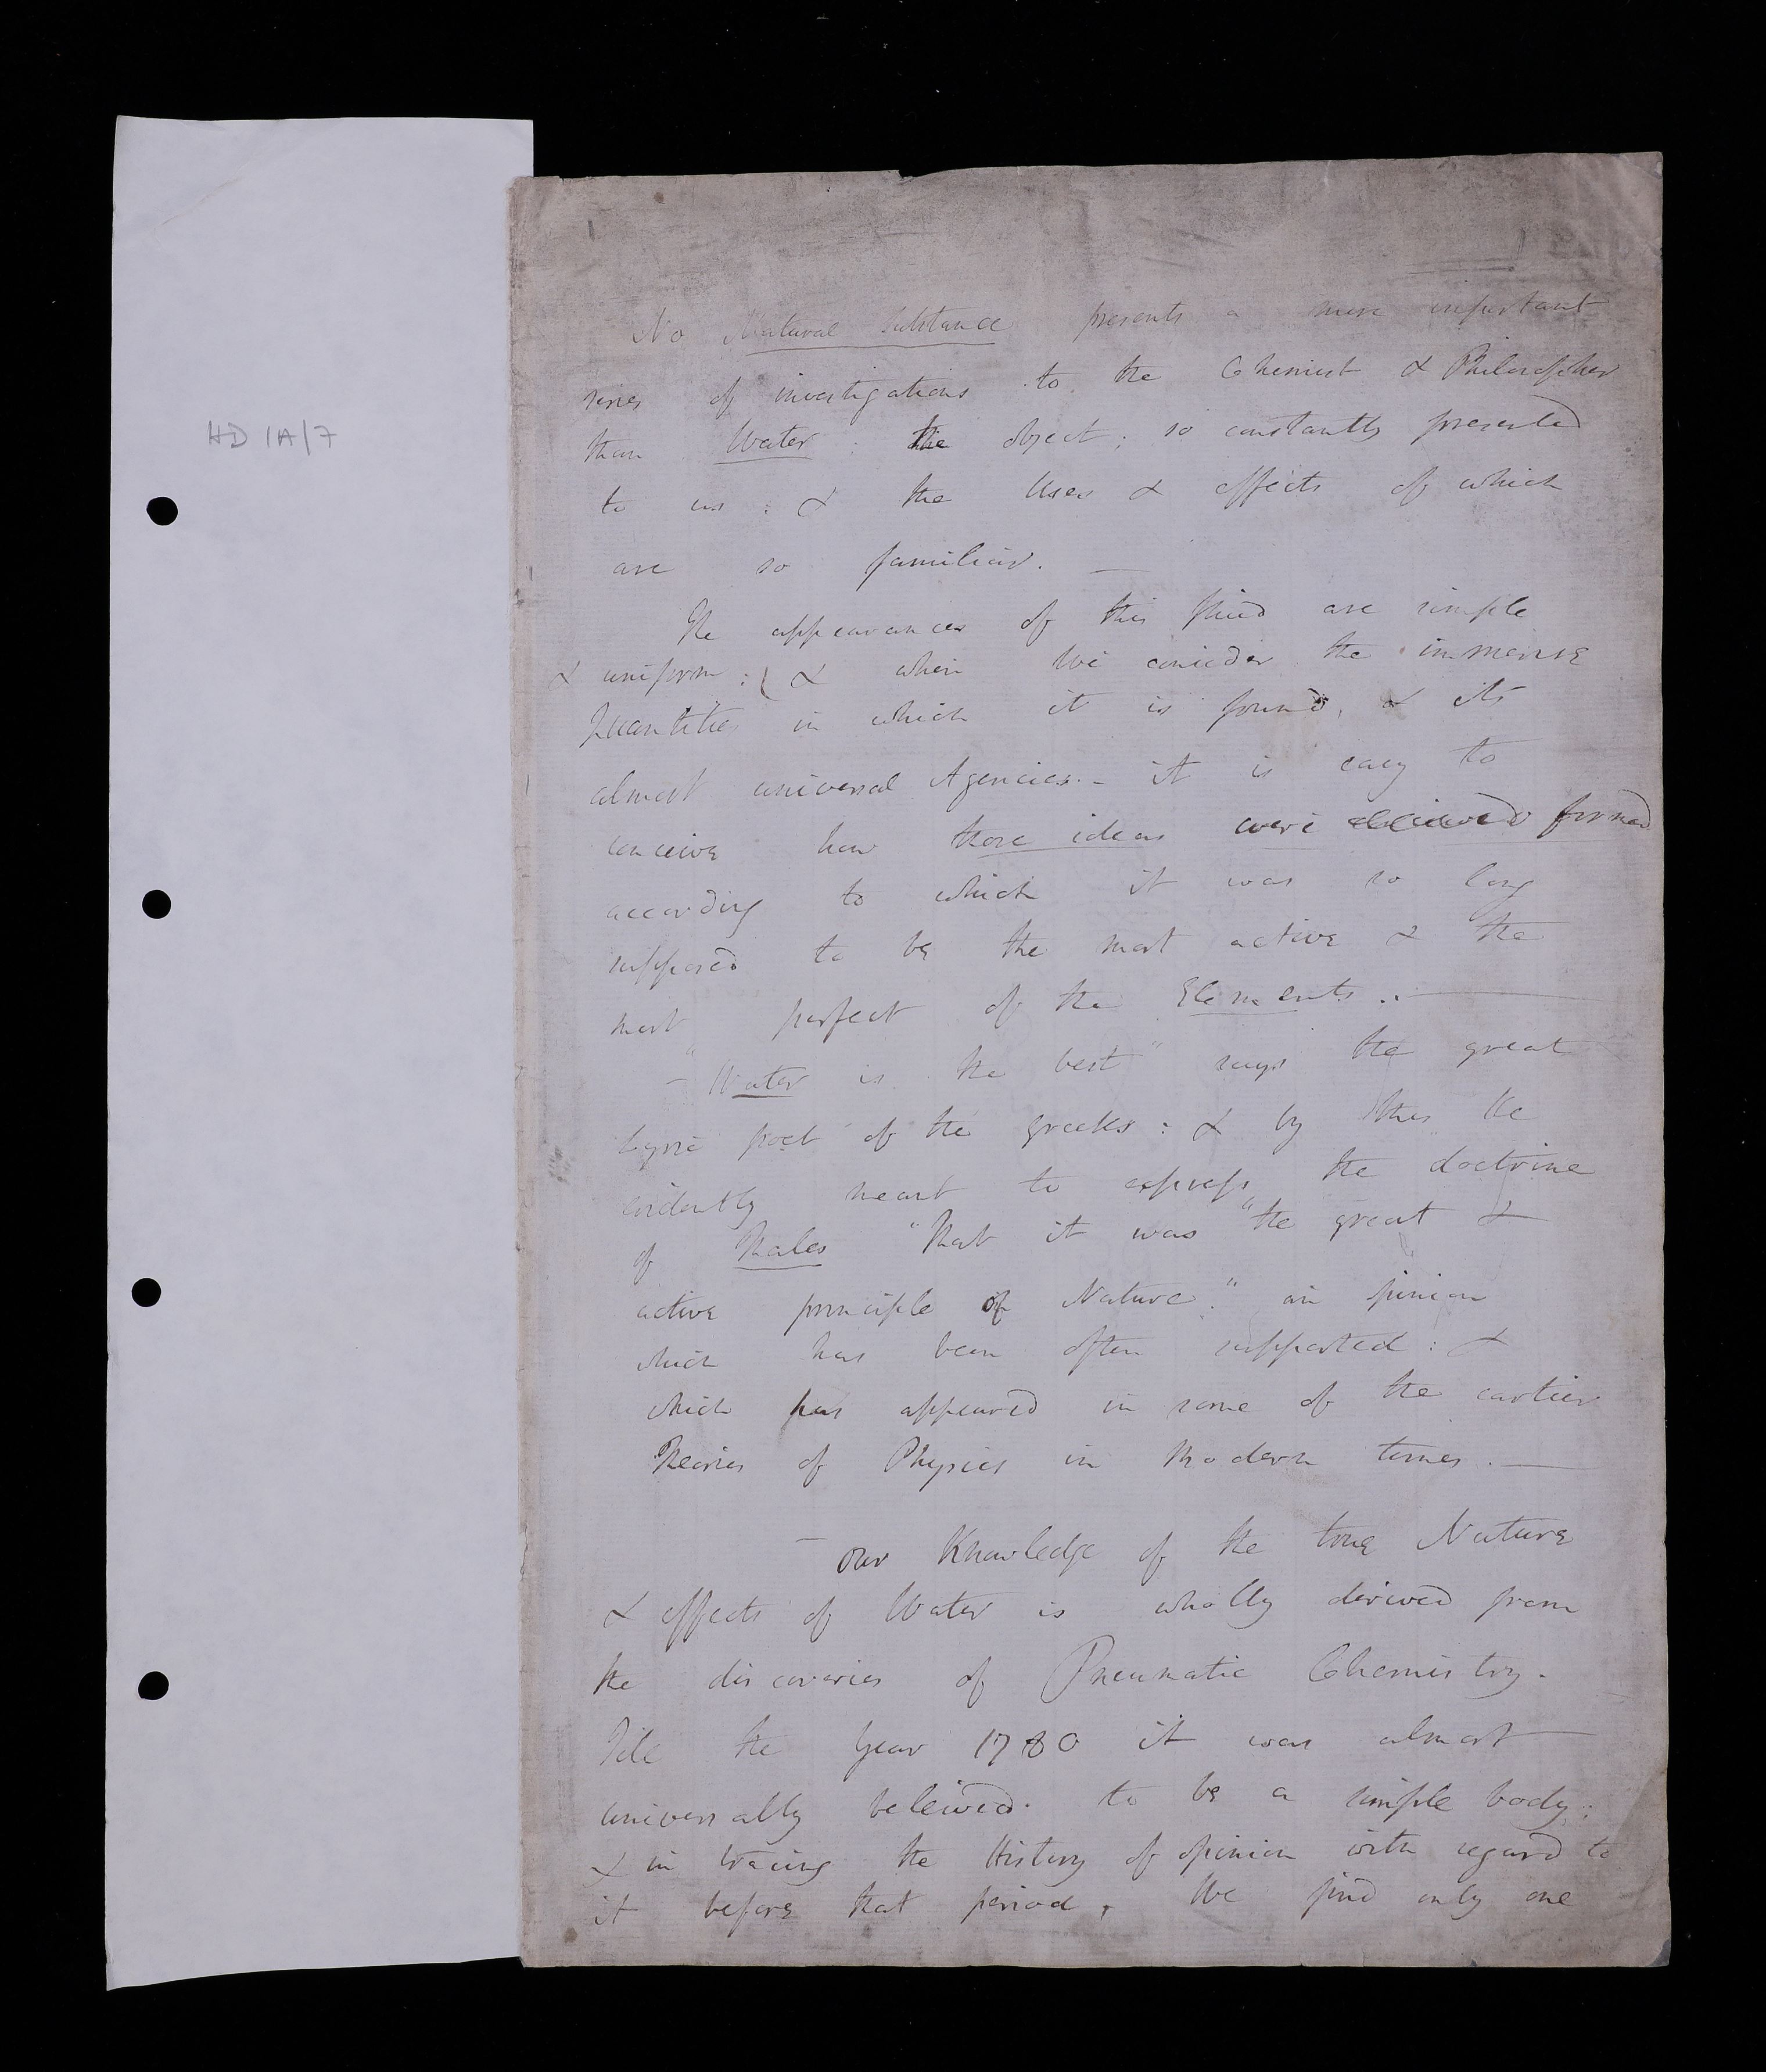 HD 1A/7
No Natural substance presents a more important
series of investigations to the Chemist & Philosopher
than Water : the object ; so constantly presented
to us : & the Uses & effects of which
are so familiar. —
The appearances of this fluid are simple
& uniform :( & when We consider the immense
Quantities in which it is found, & its
almost universal Agencies. - it is easy to
conceive how those ideas were formed
according to which it was so long
supposed to be the most active & the
most perfect of the Elements . . —
— "Water is the best" says the great
Lyric poet of the greeks : & by this He
evidently meant to express the doctrine
of Thales "That it was "the great &
active principle of Nature." an opinion
which has been often supported : &
which has appeared in some of the earlier
Theories of Physics in Modern times . —
— Our Knowledge of the true Nature
& effects of Water is wholly derived from
the discoveries of Pneumatic Chemistry.
Till the Year 1780 it was almost
universally beleived. to be a simple body;
& in tracing the History of opinion with regard to
it before that period, We find only one